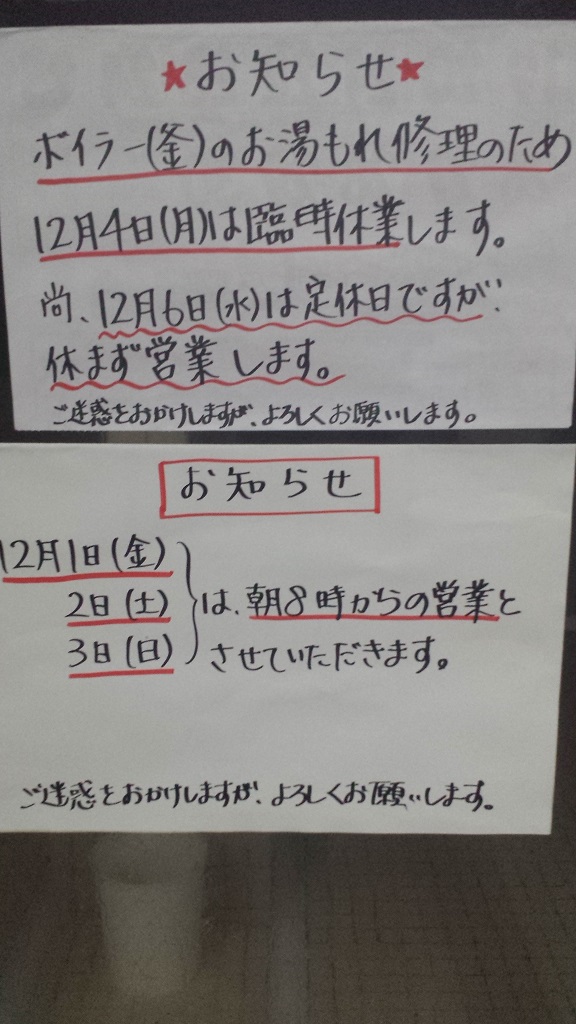 ★お知らせ★
ボイラー(釜)のお湯もれ修理のため
12月4日(月)は臨時休業します。
尚、12月6日(水)は定休日ですが、
休まず営業します。
ご迷惑をおかけしますが、よろしくお願いします。
お知らせ
12月1日(金)
2日(土)
3日(日)
は、朝8時からの営業と
させていただきます。
ご迷惑をおかけしますが、よろしくお願いします。